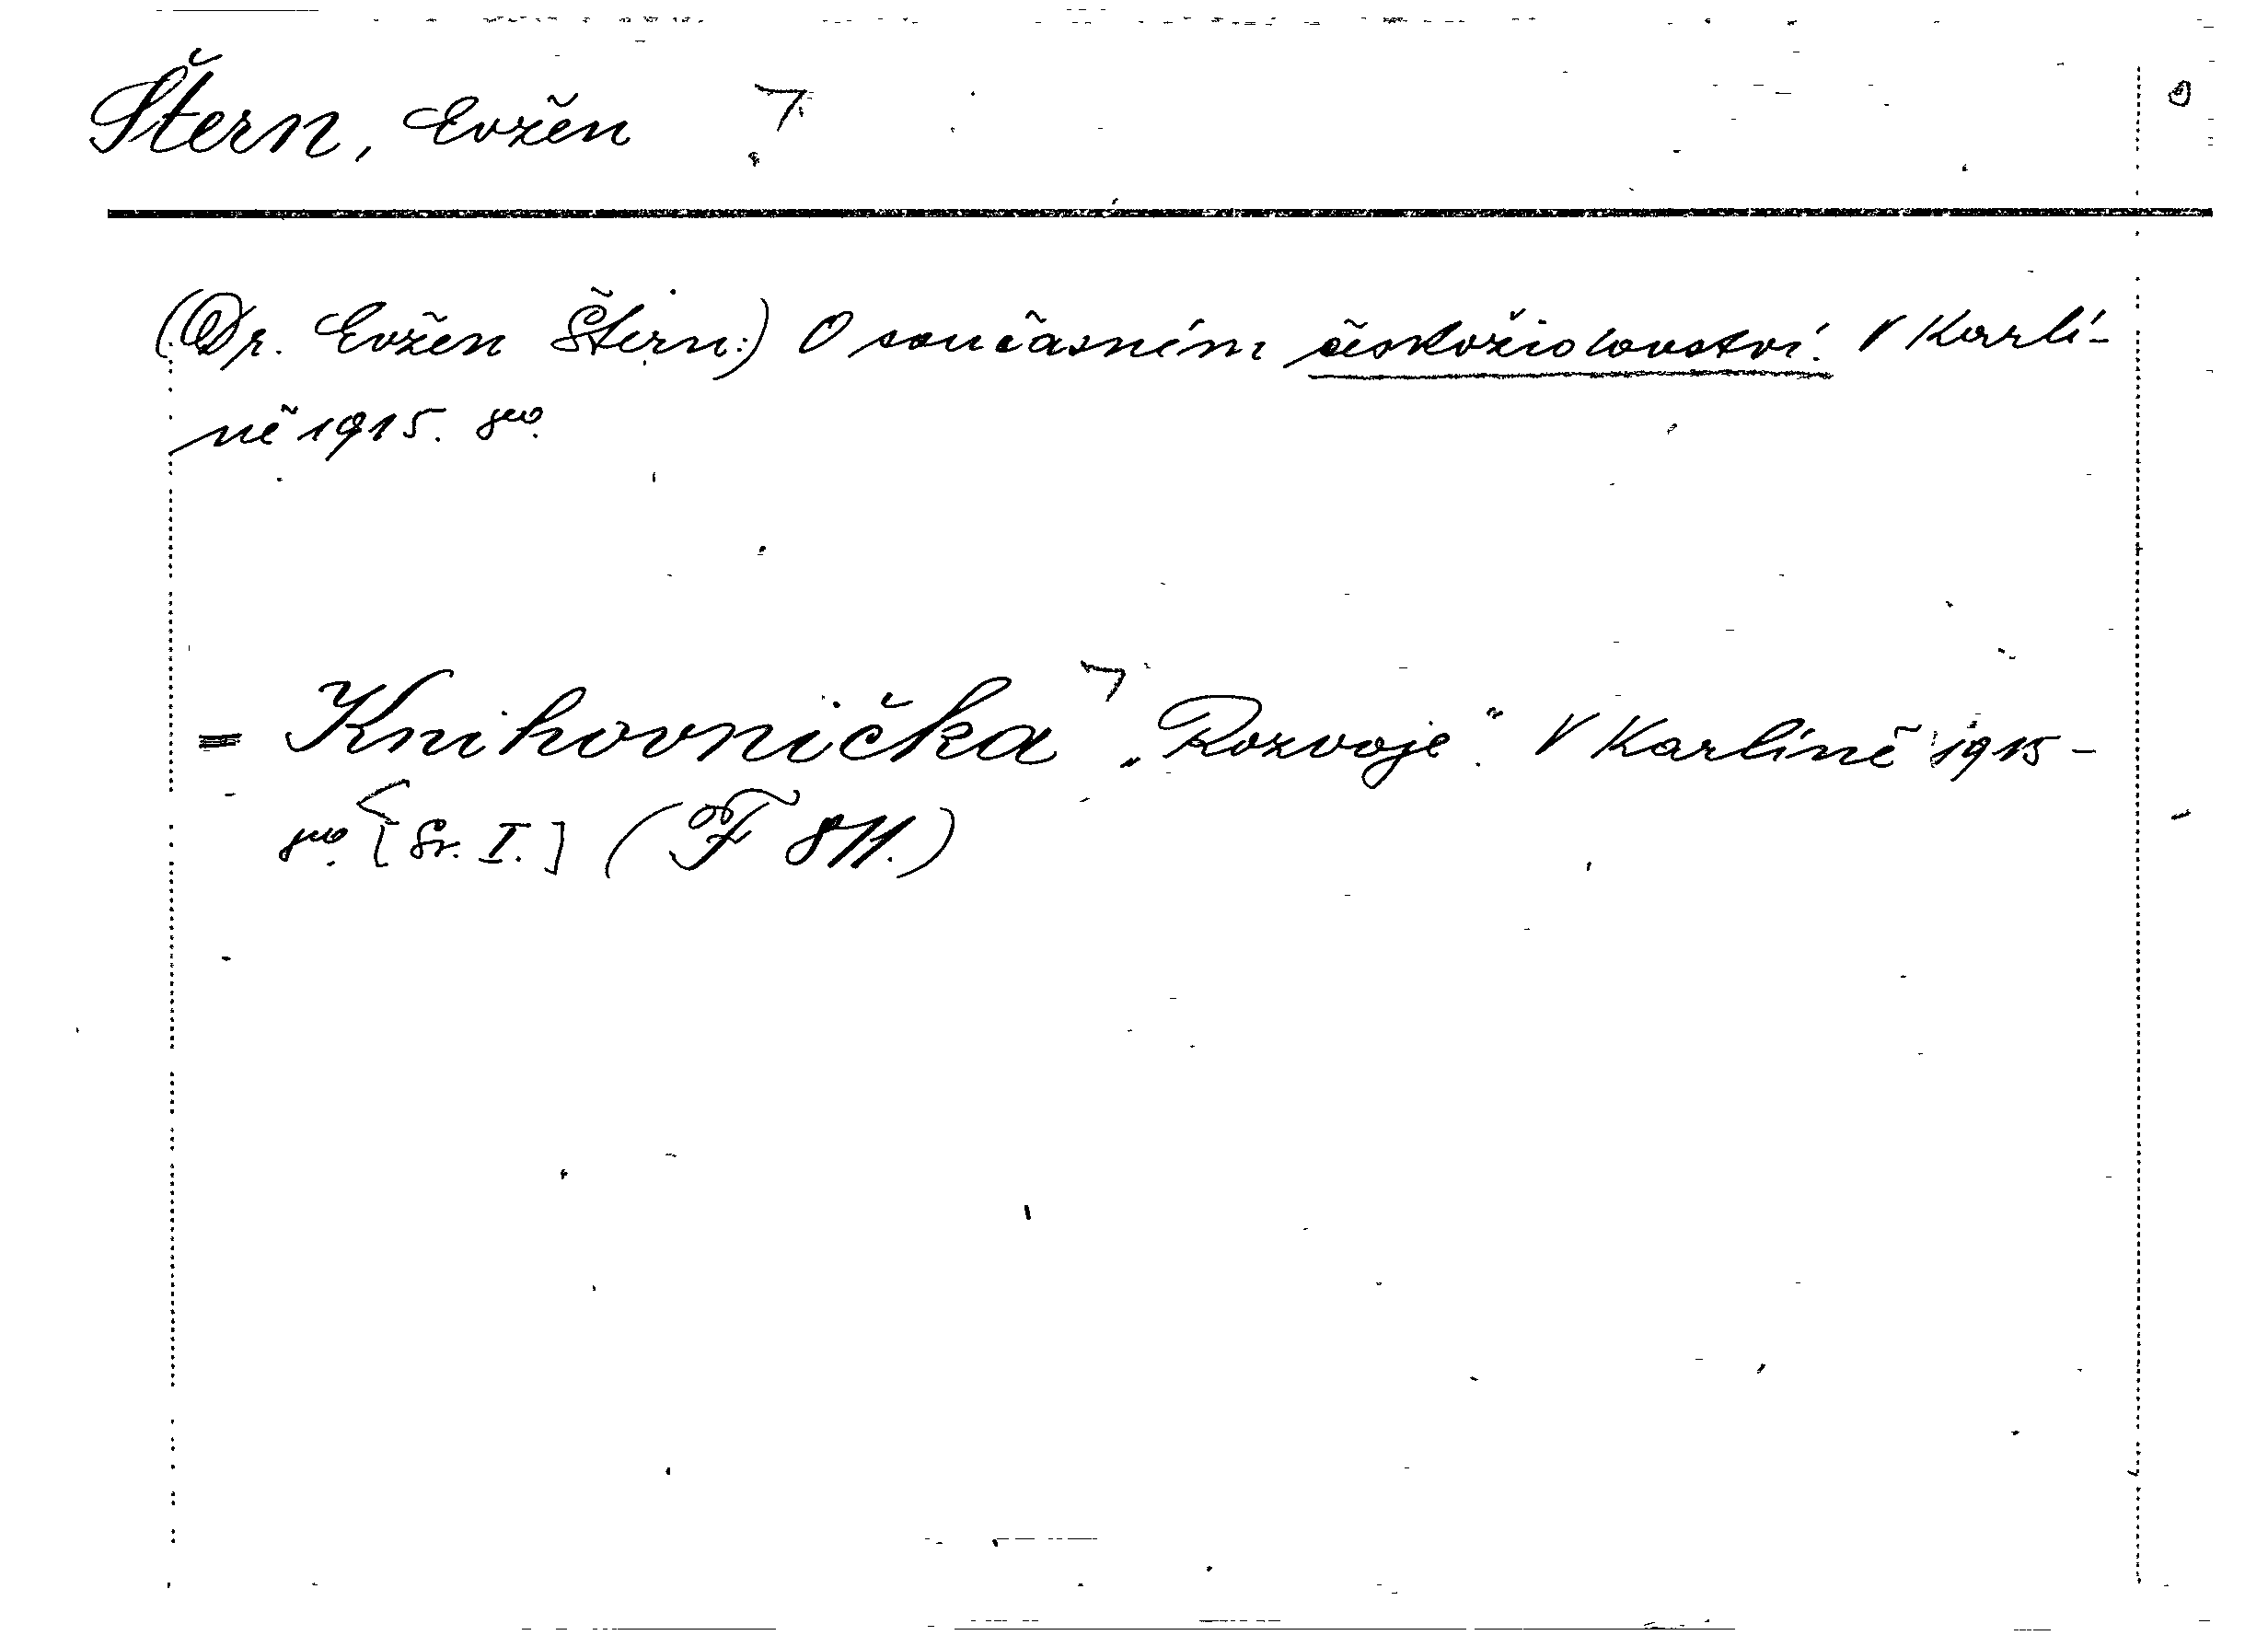 Štern, Evžen
(Dr. Evžen Štern:) O současném českožidovství. V Karlí-
ně 1915. 8vo.
= Knihovnička „Rozvoje". V Karlíně 1915-
8vo. [Sv. I.] (F 811.)